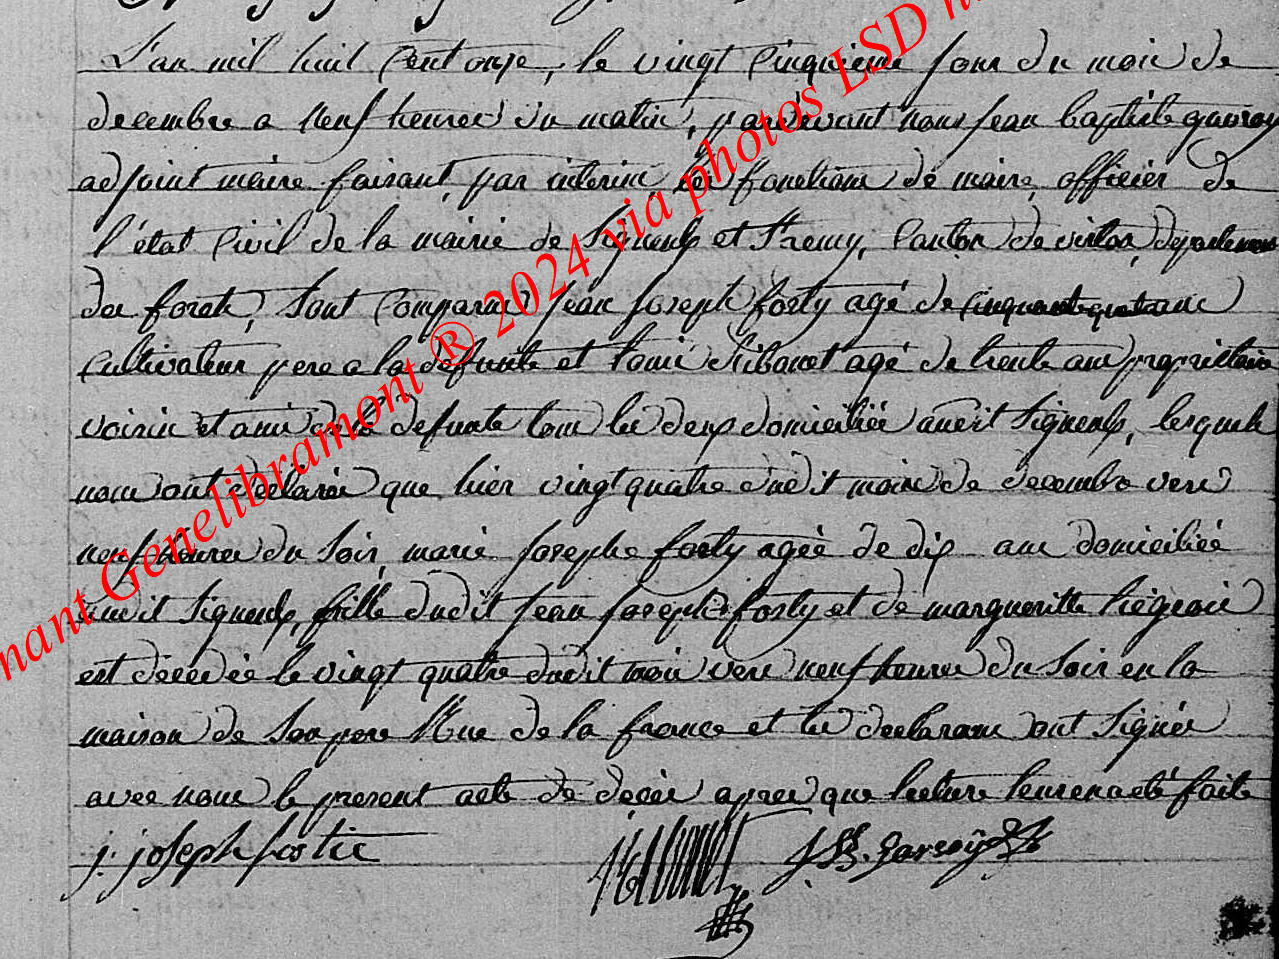 L'an mil huit Cent onze, le vingt Cinquieme jour du mois de
decembre a neuf heures du matin, pardevant nous jean baptiste
adjoint maire faisant par interim les fonctions de maire officier de
l'état Civil de la mairie de Signeulx et St remy, Canton de virton, departement
des forets, Sont Comparus jean joseph forty agé de Cinquante quatre ans
Cultivateur pere a la defunte et agé de trente ans proprietaire
voisin et ami de la defunte tous les deux domiciliés audit Signeulx, lesquels
nous ont déclarés que hier vingt quatre dudit mois de decembre vers
neuf heures du Soir marie josephe forty agée de dix ans domiciliée
audit Signeulx, fille dudit jean joseph forty et de margueritte liégeois
est décédée le vingt quatre dudit mois vers neuf heures du Soir en la
maison de Son pere Rue de la france et les declarans ont Signés
avec nous le present acte de décés apres que lecture leur en a été faite
j: joseph
nant Genelibramont ® 2024 via photos LSD n